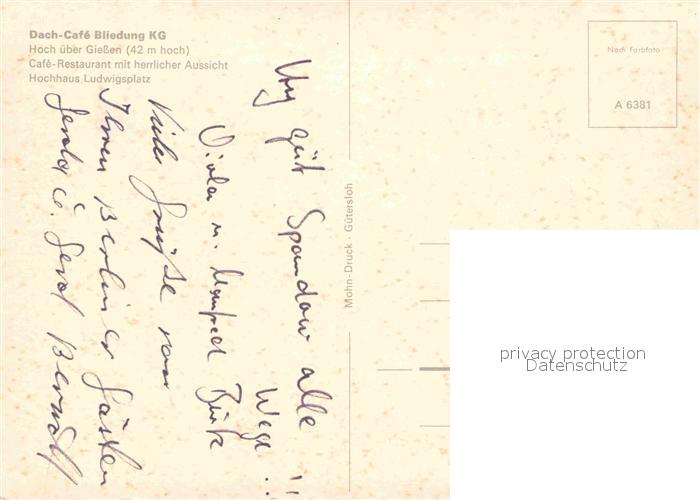 Dach-Café Bliedung KG
Hoch über Gießen (42 m hoch)
Café-Restaurant mit herrlicher Aussicht
Hochhaus Ludwigsplatz
Nach Farbfoto
A 6381
Mohn-Druck · Gütersloh
güt Spandau alle
Wege !!
Manfred
Viele Grüße von
Ihren Berliner Gästen
Gerda u. Gerd
privacy protection
Datenschutz